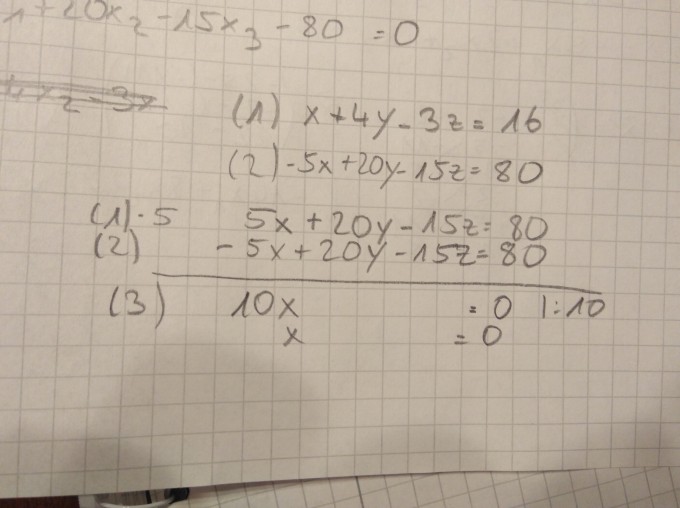 1 + 20x₂ - 15x₃ - 80 = 0
(1) x + 4y - 3z = 16
(2) -5x + 20y - 15z = 80
(1) · 5 5x + 20y - 15z = 80
(2) - 5x + 20y - 15z = 80
(3) 10x = 0 | : 10
x = 0